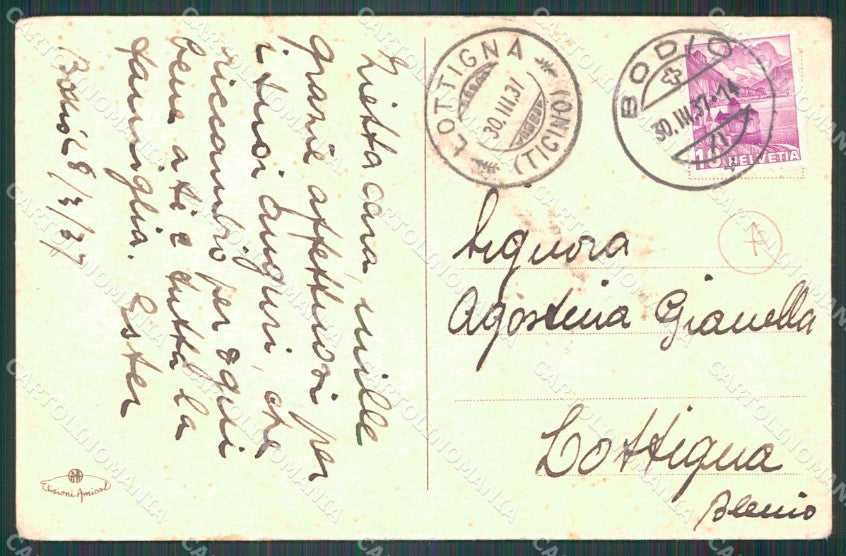 Zietta cara, mille
grazie affettuosi per
i tuoi auguri, che
riccambio per ogni
bene a te e tutta la
famiglia. Ester
Bodio 28/3/37
LOTTIGNA
30.III.37
(TICINO)
BODIO
30.III.37-14
10 HELVETIA
A
Signora
Agostina Gianella
Lottigna
Blenio
CARTOLINOMANIA